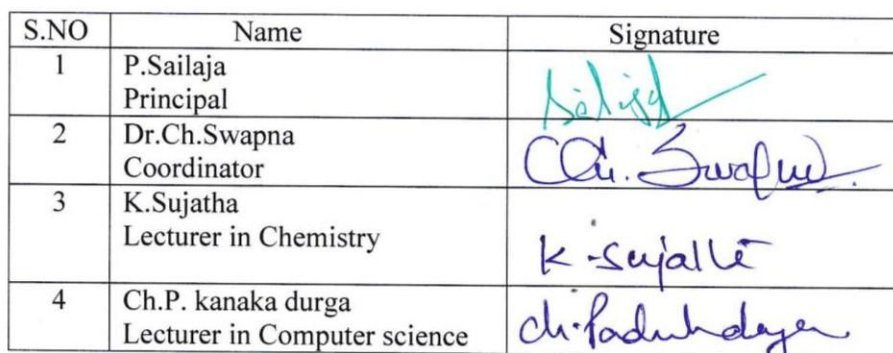 S.NO Name Signature
1 P.Sailaja
Principal
2 Dr.Ch.Swapna
Coordinator Ch. Swapna
3 K.Sujatha
Lecturer in Chemistry
K. Sujatha
4 Ch.P. kanaka durga
Lecturer in Computer science